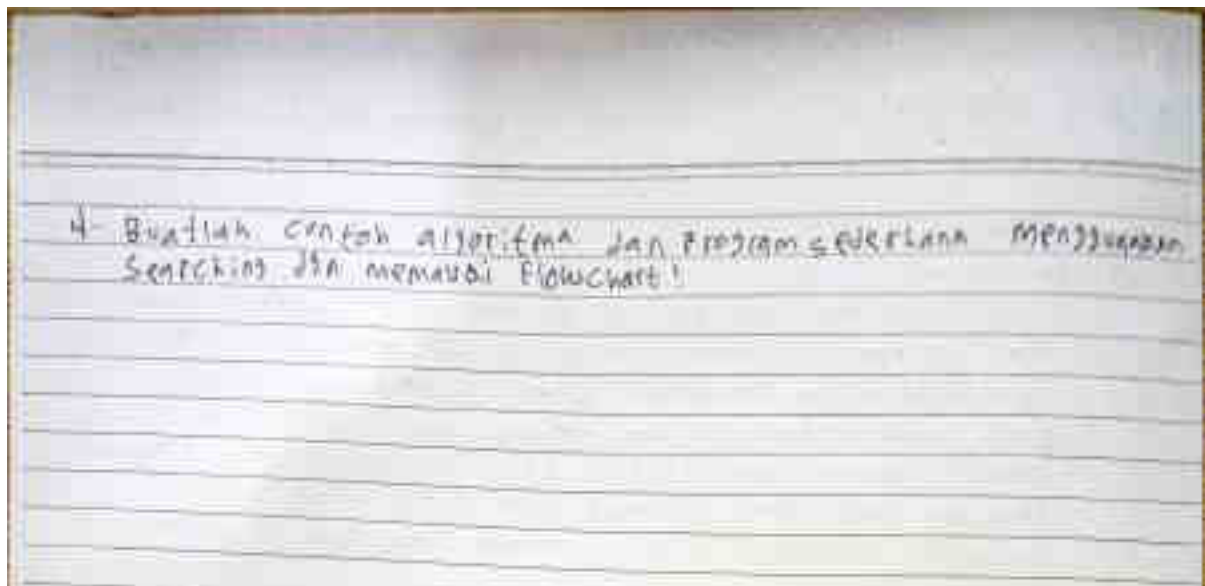 4. Buatlah contoh algoritma dan Program sederhana menggunakan
Searching dan memakai Flowchart!